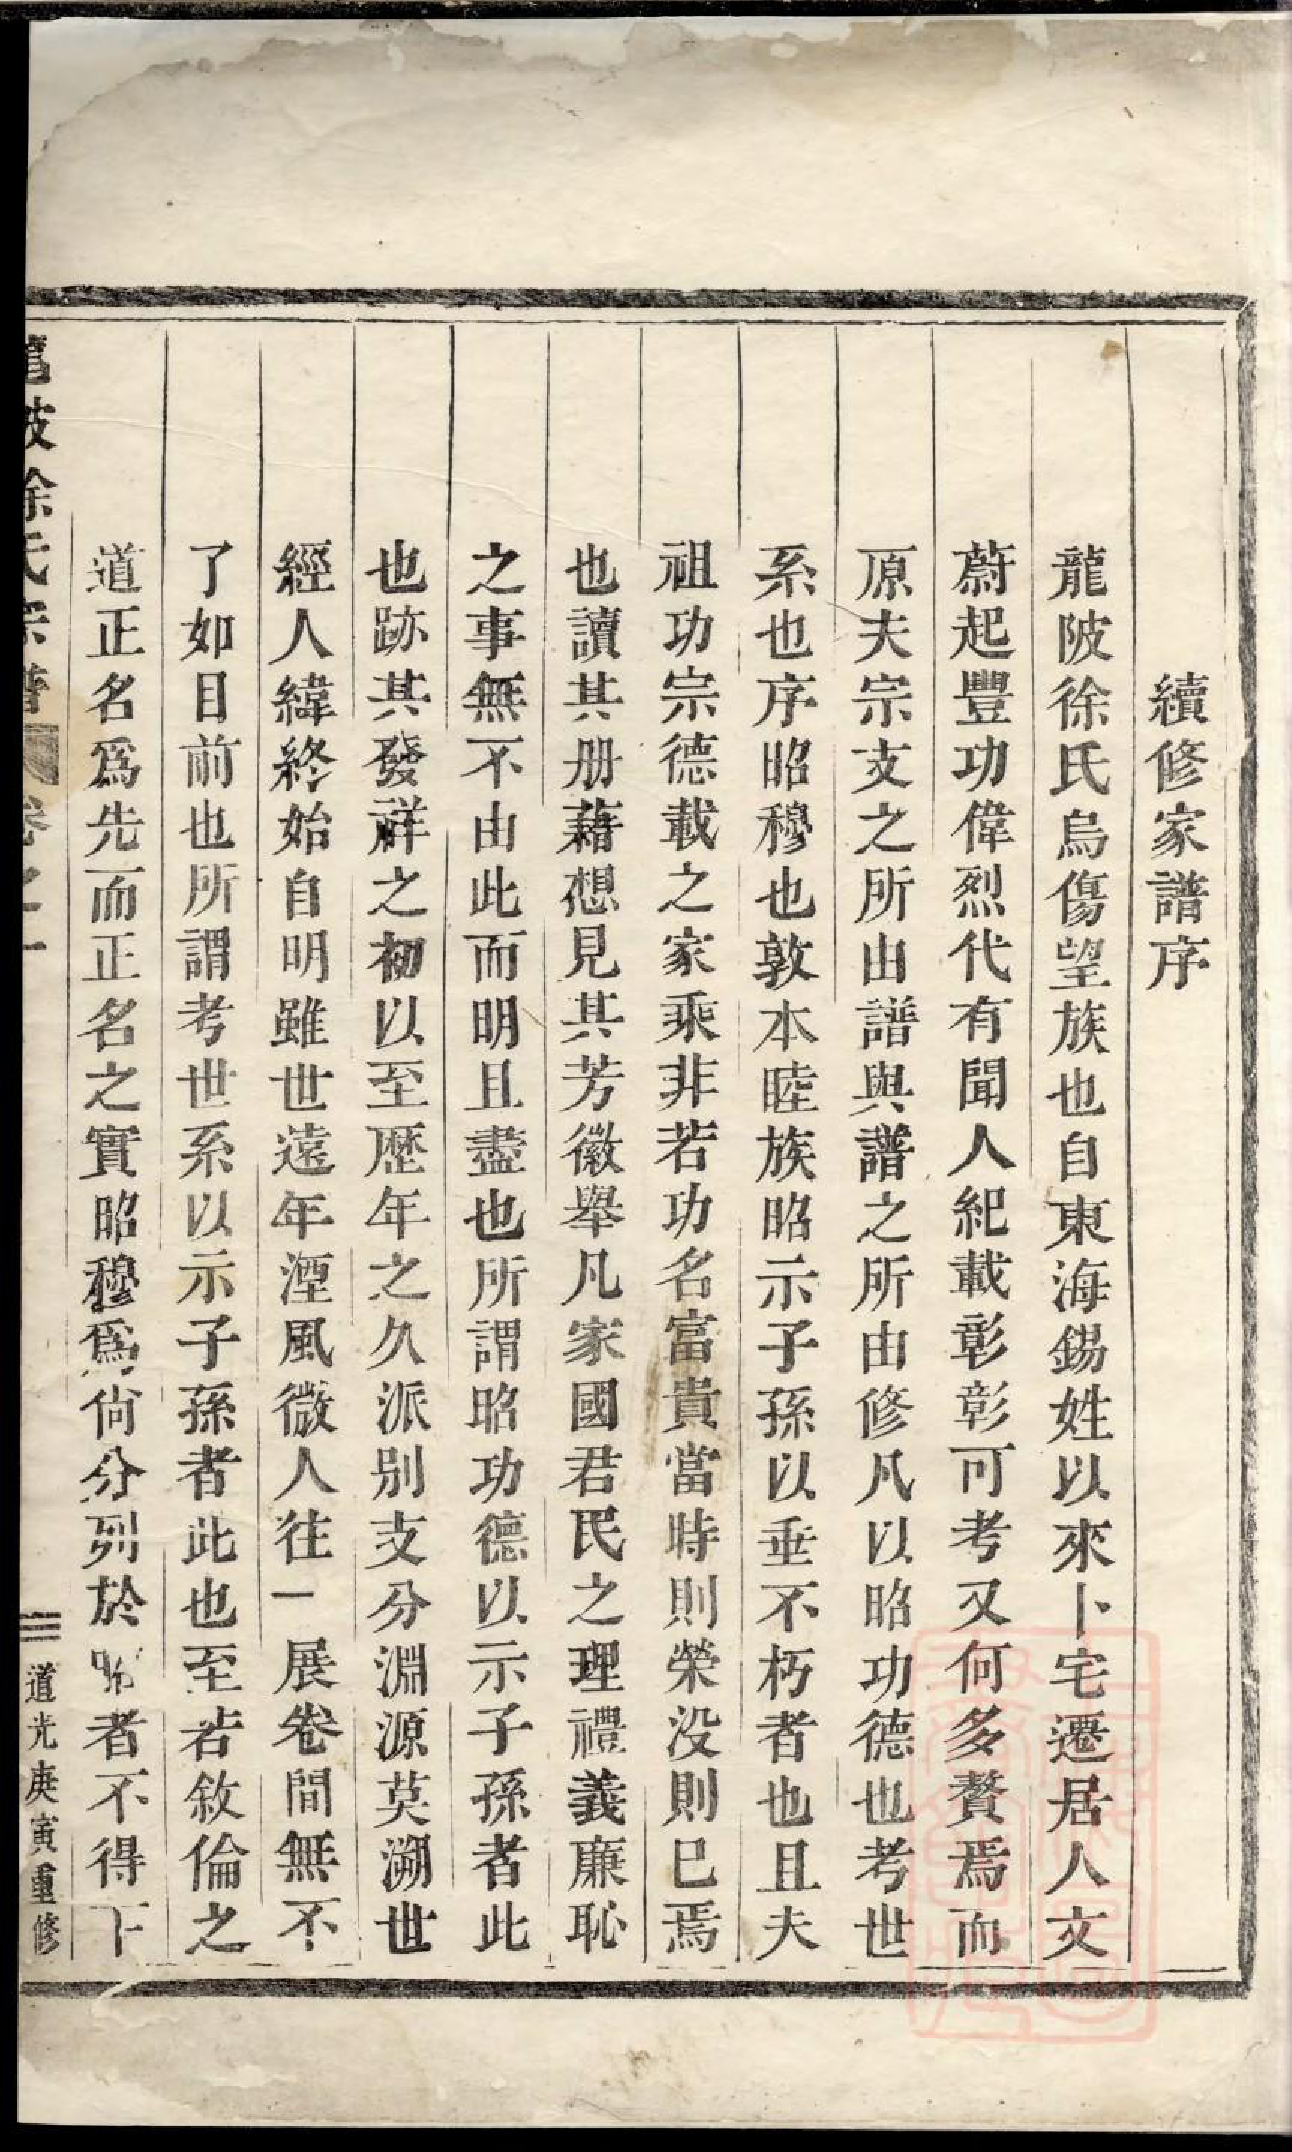 續修家譜序
龍陂徐氏烏傷望族也自東海錫姓以來卜宅遷居人文
蔚起豐功偉烈代有聞人紀載彰彰可考又何多贅焉而
原夫宗支之所由譜與譜之所由修凡以昭功德也考世
系也序昭穆也敦本睦族昭示子孫以垂不朽者也且夫
祖功宗德載之家乘非若功名富貴當時則榮没則已焉
也讀其册藉想見其芳徽舉凡家國君民之理禮義廉恥
之事無不由此而明且盡也所謂昭功德以示子孫者此
也跡其發祥之初以至歷年之久派別支分淵源莫溯世
經人緯終始自明雖世遠年湮風微人往一展卷間無不
了如目前也所謂考世系以示子孫者此也至若敘倫之
道正名爲先而正名之實昭穆爲尚分列於昭者不得下
龍陂徐氏宗譜 卷之一 三 道光庚寅重修